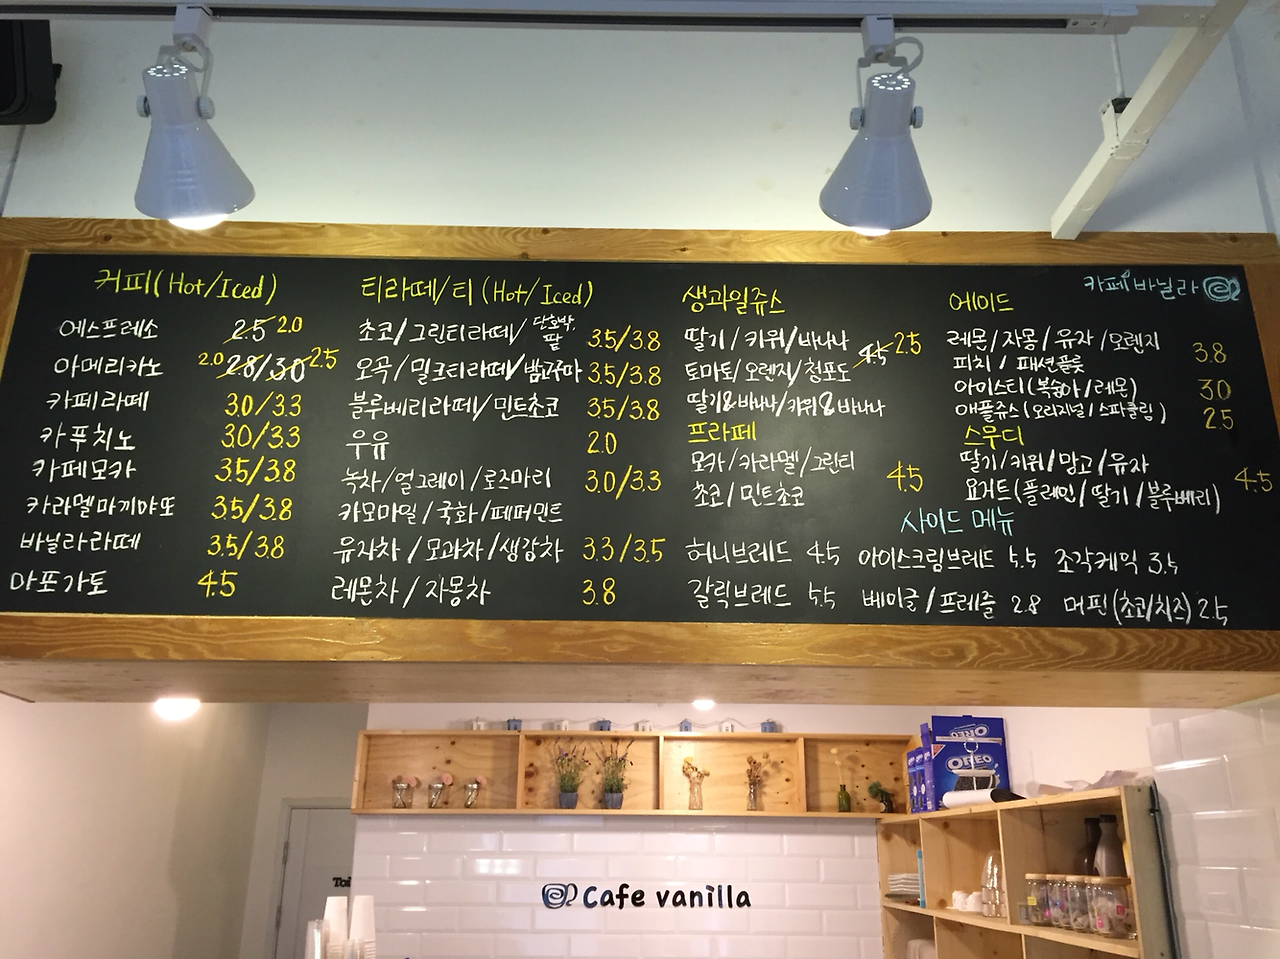 카페바닐라
커피(Hot/Iced)
에스프레소 2.5 2.0
아메리카노 2.0 2.8/3.0 2.5
카페라떼 3.0/3.3
카푸치노 3.0/3.3
카페모카 3.5/3.8
카라멜마끼야또 3.5/3.8
바닐라라떼 3.5/3.8
아포가토 4.5
티라떼/티(Hot/Iced)
초코/그린티라떼/단호박, 팥 3.5/3.8
오곡/밀크티라떼/밤고구마 3.5/3.8
블루베리라떼/민트초코 3.5/3.8
우유 2.0
녹차/얼그레이/로즈마리 3.0/3.3
카모마일/국화/페퍼민트
유자차/모과차/생강차 3.3/3.5
레몬차/자몽차 3.8
생과일쥬스
딸기/키위/바나나 4.5 2.5
토마토/오렌지/청포도
딸기&바나나/키위&바나나
프라페
모카/카라멜/그린티 4.5
초코/민트초코
에이드
레몬/자몽/유자/오렌지 3.8
피치/패션푸룻
아이스티(복숭아/레몬) 3.0
애플쥬스(오리지널/스파클링) 2.5
스무디
딸기/키위/망고/유자 4.5
요거트(플레인/딸기/블루베리)
사이드 메뉴
허니브레드 4.5 아이스크림브레드 5.5 조각케익 3.5
갈릭브레드 5.5 베이글/프레즐 2.8 머핀(초코/치즈) 2.5
OREO
OREO
Cafe vanilla
Toi